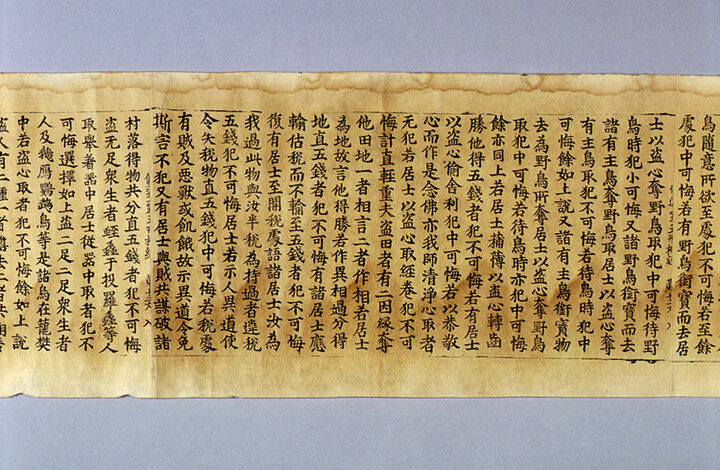 鳥隨意所欲至處犯不可悔若至餘
處犯中可悔若有野鳥銜寶而去居
士以盜心奪野鳥取犯中可悔待野
鳥時犯小可悔又諸野鳥銜寶而去
諸有主鳥奪野鳥取居士以盜心奪
有主鳥取犯不可悔若待鳥時犯中
可悔餘如上說又諸有主鳥銜寶物
去為野鳥所奪居士以盜心奪野鳥
取犯中可悔若待鳥時亦犯中可悔
餘亦同上若居士摴蒱以盜心轉齒
勝他得五錢者犯不可悔若有居士
以盜心偷舍利犯中可悔若以恭敬
心而作是念佛亦我師清淨心取者
无犯若居士以盜心取經卷犯不可
悔計直輕重夫盜田者有二因緣奪
他田地一者相言二者作相若居士
為地故言他得勝若作異相過分得
地直五錢者犯不可悔有諸居士應
輸估稅而不輸至五錢者犯不可悔
復有居士至關稅處語諸居士汝為
我過此物與汝半稅為持過者違稅
五錢犯不可悔居士若示人異道使
令失稅物直五錢犯中可悔若稅處
有賊及惡獸或飢餓故示異道令免
斯害不犯又有居士與賊共謀破諸
村落得物共分直五錢者犯不可悔
盜无足眾生者蛭蟲于投羅蟲等人
取舉著器中居士從器中取者犯不
可悔選擇如上盜二足三足眾生者
人及鵝鴈鸚鵡鳥等是諸鳥在籠樊
中若盜心取者犯不可悔餘如上說